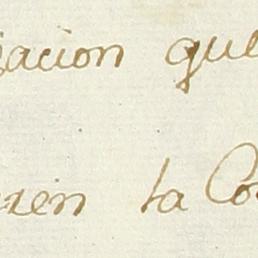 acion que
ren la Co